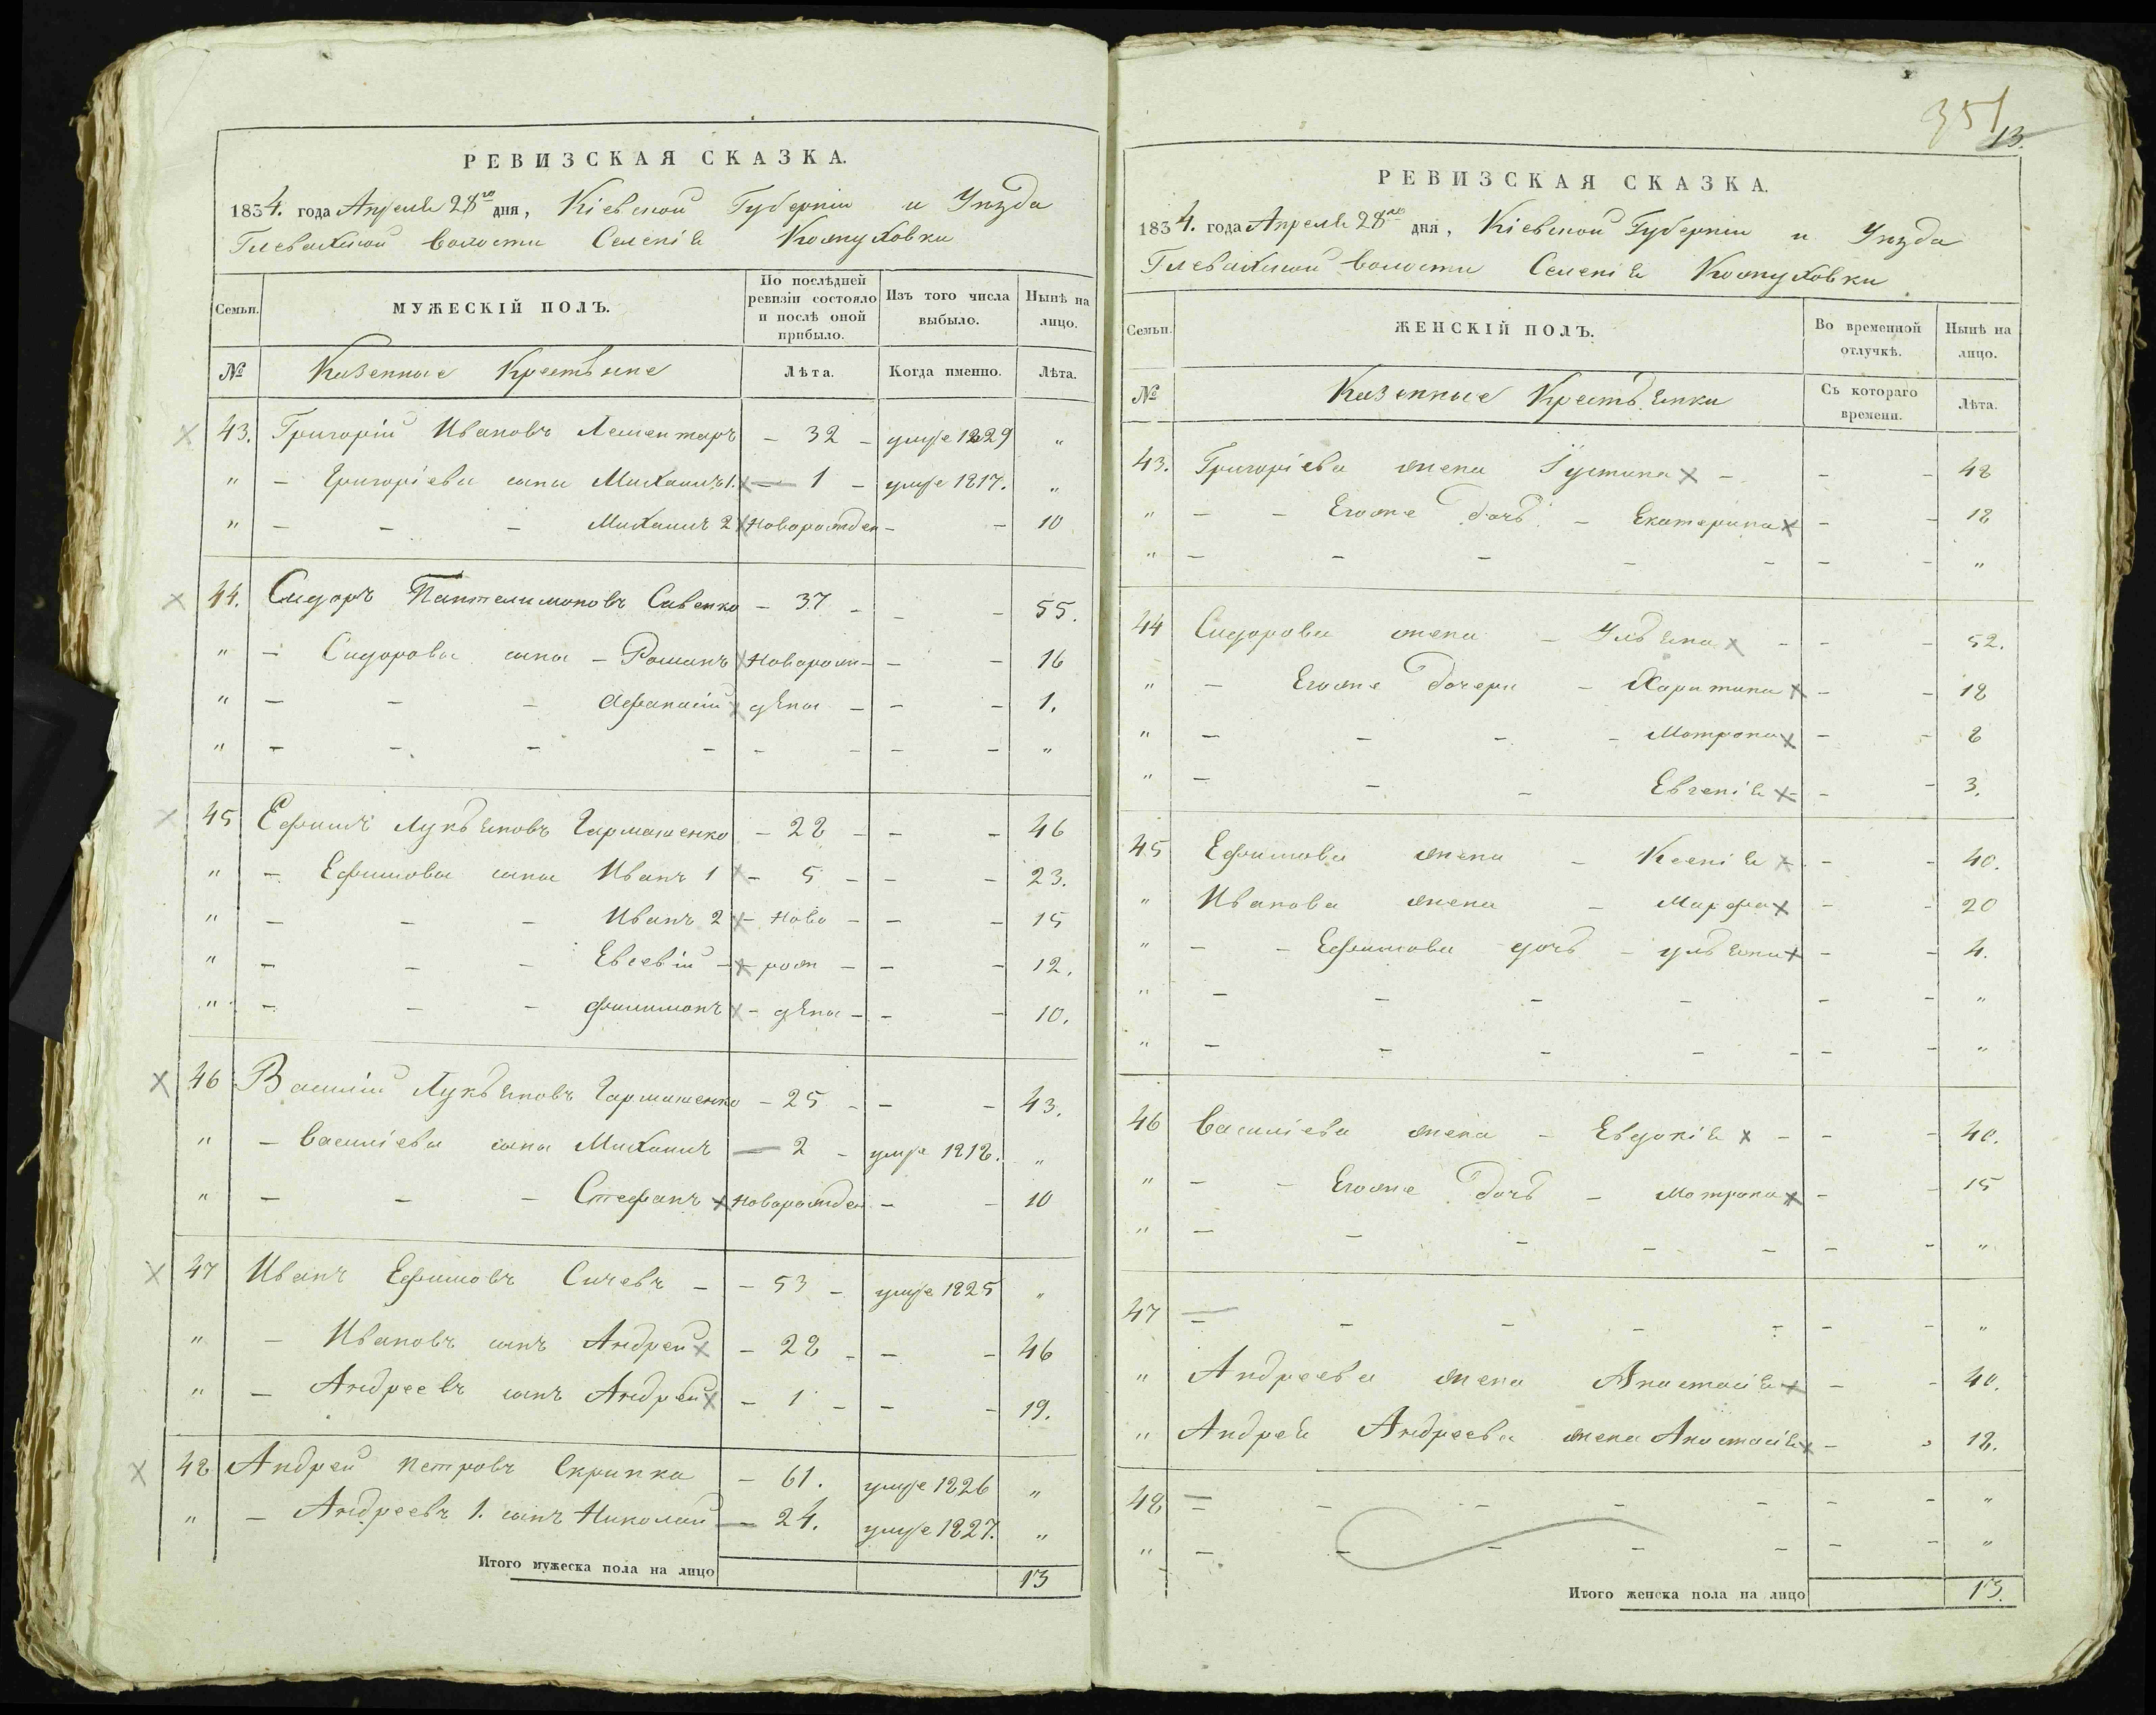 РЕВИЗСКАЯ СКАЗКА.
1834. года Апреля 28го дня, Кіевской Губерніи и Уѣзда
Глевахской волости Селенія Кожуховки
Семьи. МУЖЕСКІЙ ПОЛЪ. По послѣдней ревизіи состояло и послѣ оной прибыло. Изъ того числа выбыло. Нынѣ на лицо.
№ Казенные Крестьяне Лѣта. Когда именно. Лѣта.
43. Григорій Ивановъ Лементарь - 32 - умре 1829 "
" - Григоріевы сыны Михаилъ 1. - 1 - умре 1817. "
" - - - Михаилъ 2 новорожден - - 10
44. Сидоръ Пантелимоновъ Савенко - 37 - - - 55.
" - Сидоровы сыны - Романъ новорож - - - 16
" - - - Афанасій дены - - - 1.
" - - - - - - - - "
45 Ефимъ Лукьяновъ Гармашенко - 28 - - - 46
" - Ефимовы сыны Иванъ 1 - 5 - - - 23.
" - - - Иванъ 2 - ново - - - 15
" - - - Евсевій - - рож - - - 12.
" - - - Филимонъ - дены - - - 10.
46 Василій Лукьяновъ Гармашенко - 25 - - - 43.
" - Василіевы сыны Михаилъ - 2 - умре 1818. "
" - - - Стефанъ новорожден - - 10
47 Иванъ Ефимовъ Сичевъ - - 53 - умре 1825 "
" - Ивановъ сынъ Андрей - 28 - - - 46
" - Андреевъ сынъ Андрей - 1 - - - 19.
48 Андрей Петровъ Скрипка - 61. умре 1826 "
" - Андреевъ 1. сынъ Николай - 24. умре 1827. "
Итого мужеска пола на лицо 13
351
13.
РЕВИЗСКАЯ СКАЗКА.
1834. года Апреля 28го дня, Кіевской Губерніи и Уѣзда
Глевахской волости Селенія Кожуховки
Семьи. ЖЕНСКІЙ ПОЛЪ. Во временной отлучкѣ. Нынѣ на лицо.
№ Казенные Крестьянки Съ котораго времени. Лѣта.
43. Григоріева жена Іустина - - - 48
" - - Егоже дочь - Екатерина - - 18
" - - - - - - - "
44 Сидорова жена - Ульяна - - - 52.
" - Егоже дочери - Харитина - - 18
" - - - - Мотрона - - 8
" - - - Евгенія - - - 3.
45 Ефимова жена - Ксенія - - 40.
" Иванова жена - Марфа - - 20
" - - Ефимова дочь - ульяна - - 4.
" - - - - - - "
" - - - - - - - "
46 Василіева жена - Евдокія - - - 40.
" - - Егоже дочь - Мотрона - - 15
" - - - - - - - "
47 - - - - - - - "
" Андреева жена Анастасія - - 40.
" Андрея Андреева жена Анастасія - - 18.
48 - - - - - - - "
" - - - - - - - "
Итого женска пола на лицо 13.